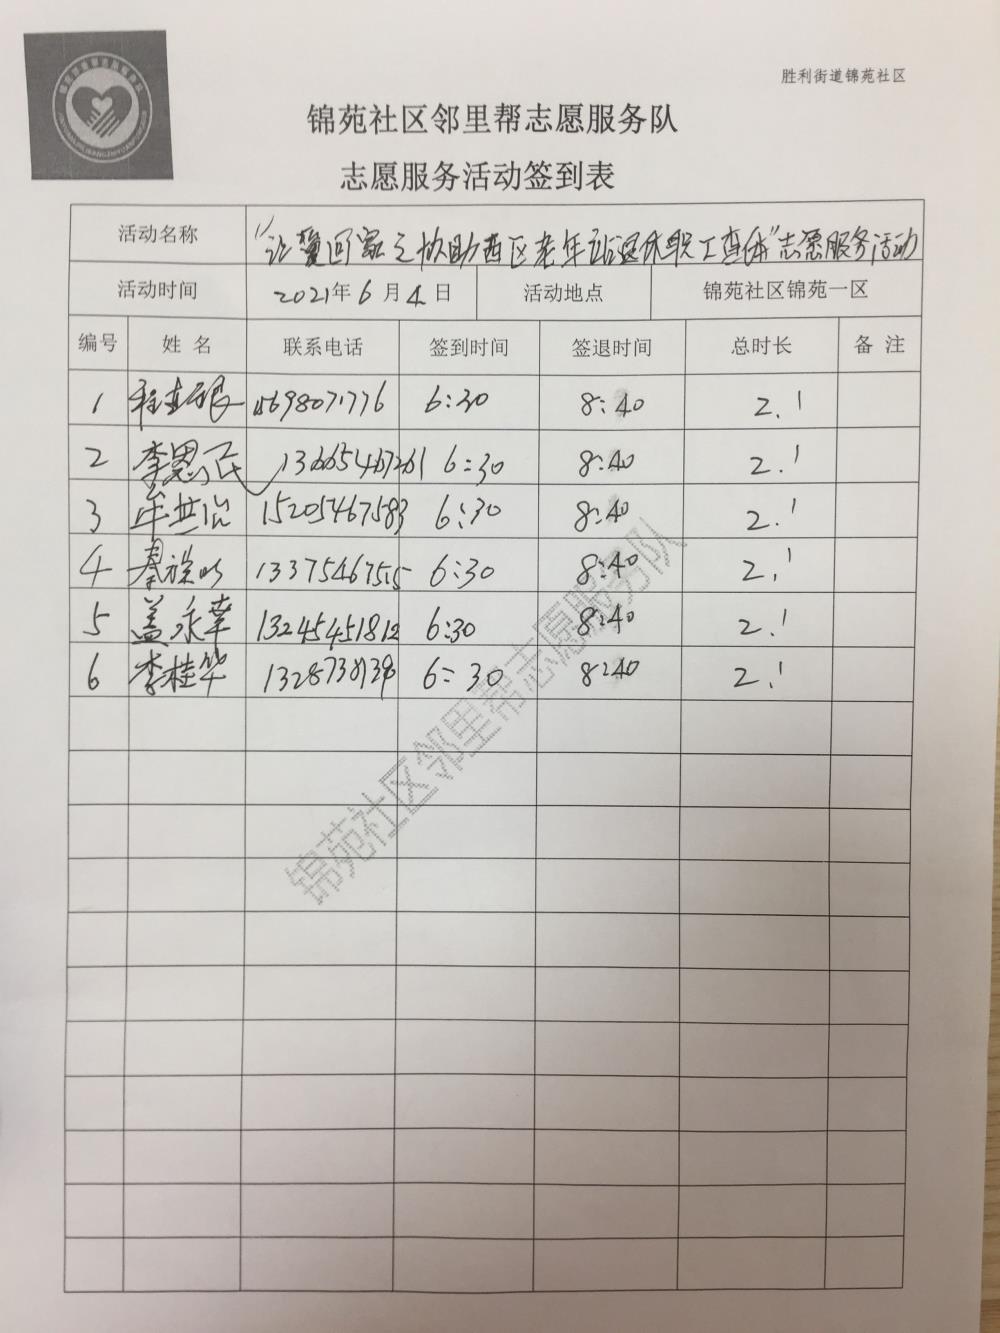 胜利街道锦苑社区
锦苑社区邻里帮志愿服务队
志愿服务活动签到表
活动名称 "让爱回家之协助西区老年站退休职工查体"志愿服务活动
活动时间 2021年6月4日 活动地点 锦苑社区锦苑一区
编号 姓名 联系电话 签到时间 签退时间 总时长 备注
1 15698071776 6:30 8:40 2.1
2 李恩民 13665467261 6:30 8:40 2.1
3 15205467583 6:30 8:40 2.1
4 13375467515 6:30 8:40 2.1
5 盖永华 13245451812 6:30 8:40 2.1
6 李桂华 6:30 8:40 2.1
锦苑社区邻里帮志愿服务队